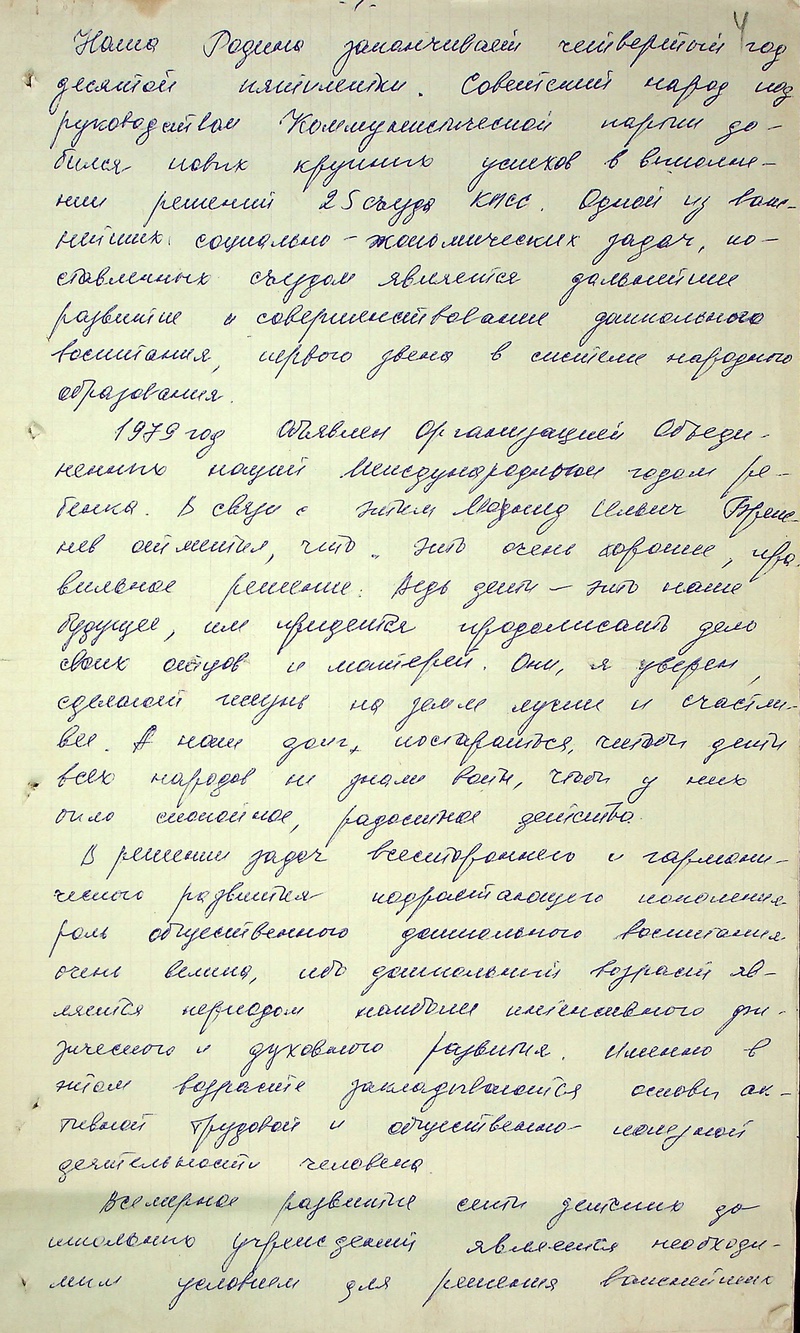 - 1 -
4
Наша Родина заканчивает четвертый год
десятой пятилетки. Советский народ под
руководством Коммунистической партии до-
бился новых крупных успехов в выполне-
нии решений 25 съезда КПСС. Одной из важ-
нейших социально-экономических задач, по-
ставленных съездом является дальнейшее
развитие и совершенствование дошкольного
воспитания, первого звена в системе народного
образования.
1979 год Объявлен Организацией Объеди-
ненных наций Международным годом ре-
бенка. В связи с этим Леонид Ильич Бреж-
нев отметил, что „это очень хорошее, пра-
вильное решение. Ведь дети — это наше
будущее, им придется продолжать дело
своих отцов и матерей. Они, я уверен,
сделают жизнь на земле лучше и счастли-
вее. А наш долг, постараться, чтобы дети
всех народов не знали войн, чтобы у них
было спокойное, радостное детство.
В решении задач всестороннего и гармони-
ческого развития подрастающего поколения
роль общественного дошкольного воспитания
очень велика, ибо дошкольный возраст яв-
ляется периодом наиболее интенсивного фи-
зического и духовного развития. Именно в
этом возрасте закладываются основы ак-
тивной трудовой и общественно-полезной
деятельности человека.
Всемерное развитие сети детских до
школьных учреждений является необходи-
мым условием для решения важнейших